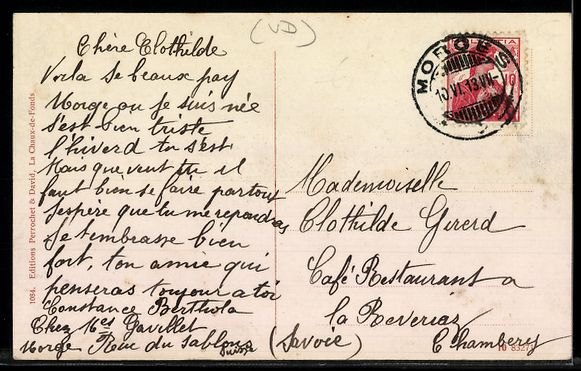 (VD)
Chère Clothilde
Voila le beaux pay
Morge ou je suis née
s'est bien triste
l'hiverd tu s'est
Mais que veut tu il
faut bien se faire partout
J'espère que tu me repondras
Je t'embrasse bien
fort, ton amie qui
penseras toujour a toi
Constance Berthola
Chez Mes Gavillet
Morge Rue du Sablons
Suisse
1084. Editions Perrochet & David, La Chaux-de-Fonds
MORGES
10.VI.13
HELVETIA
10
Mademoiselle
Clothilde Gererd
Café Restaurant a
la Reveriaz
Chambery
(Savoie)
10 8327